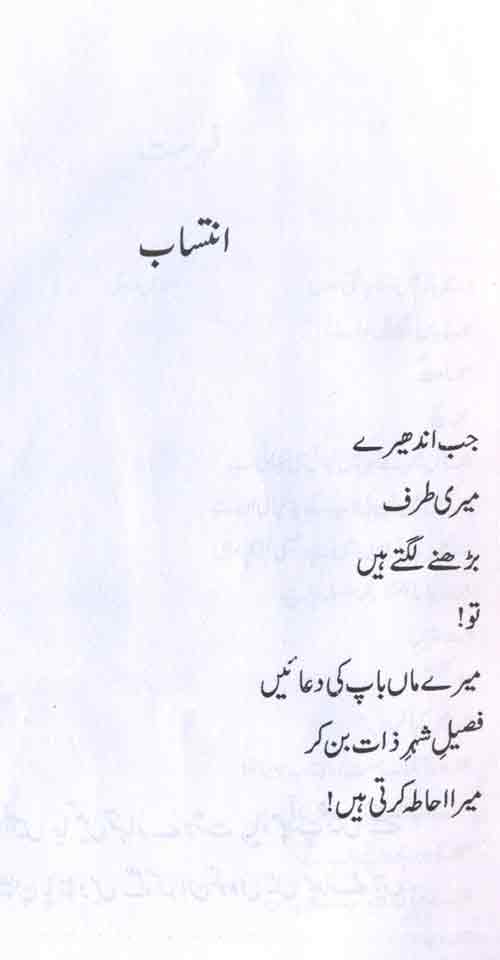 انتساب
جب اندھیرے
میری طرف
بڑھنے لگتے ہیں
تو!
میرے ماں باپ کی دعائیں
فصیلِ شہرِ ذات بن کر
میرا احاطہ کرتی ہیں!